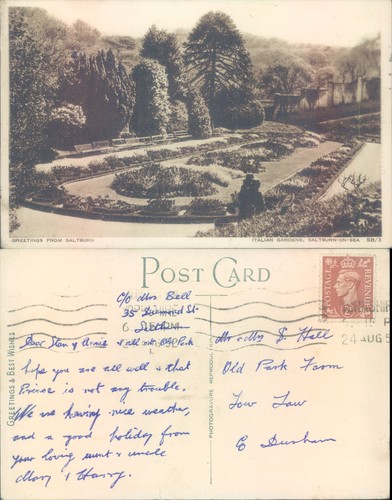 GREETINGS FROM SALTBURN
ITALIAN GARDENS, SALTBURN-ON-SEA SB/1
POST CARD
GREETINGS & BEST WISHES
PHOTOGRAVURE
POSTAGE
REVENUE
24 AUG 5
C/o Mrs Bell
35 St.
Dear Stan & Annie & all at Old Park
hope you are all well & that
Prince is not any trouble.
We are having nice weather,
and a good holiday from
your loving aunt & uncle
Mary & Harry.
Mr & Mrs S. Hall
Old Park Farm
Tow Law
Co Durham